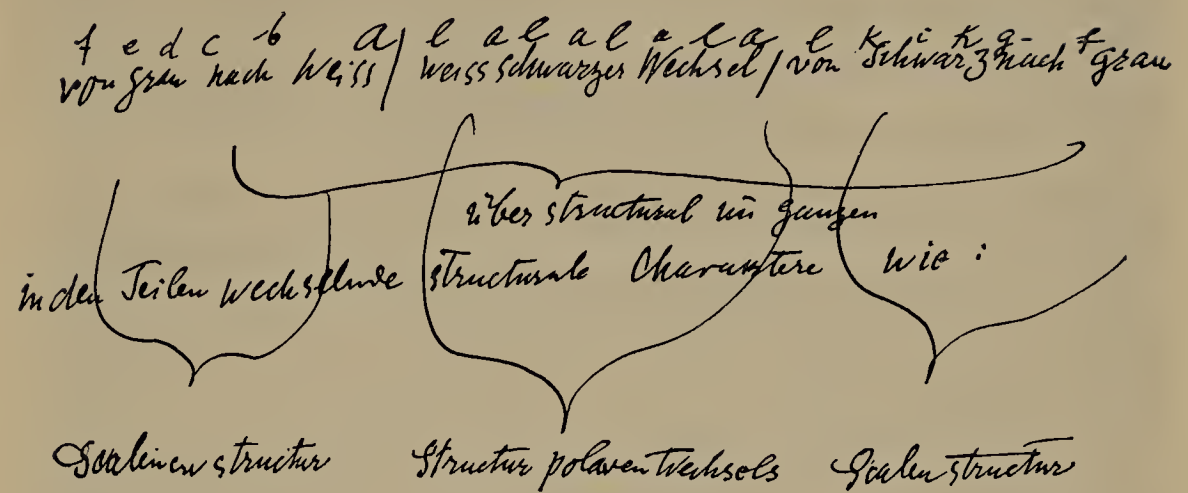 f e d c b a / l a l a l a l a l k i k g f
von grau nach Weiss / weiss schwarzer Wechsel / von Schwarz nach grau
überstructural im ganzen
in den Teilen wechselnde structurale Charaktere wie :
Scalenenstructur Structur polaren Wechsels Scalenstructur